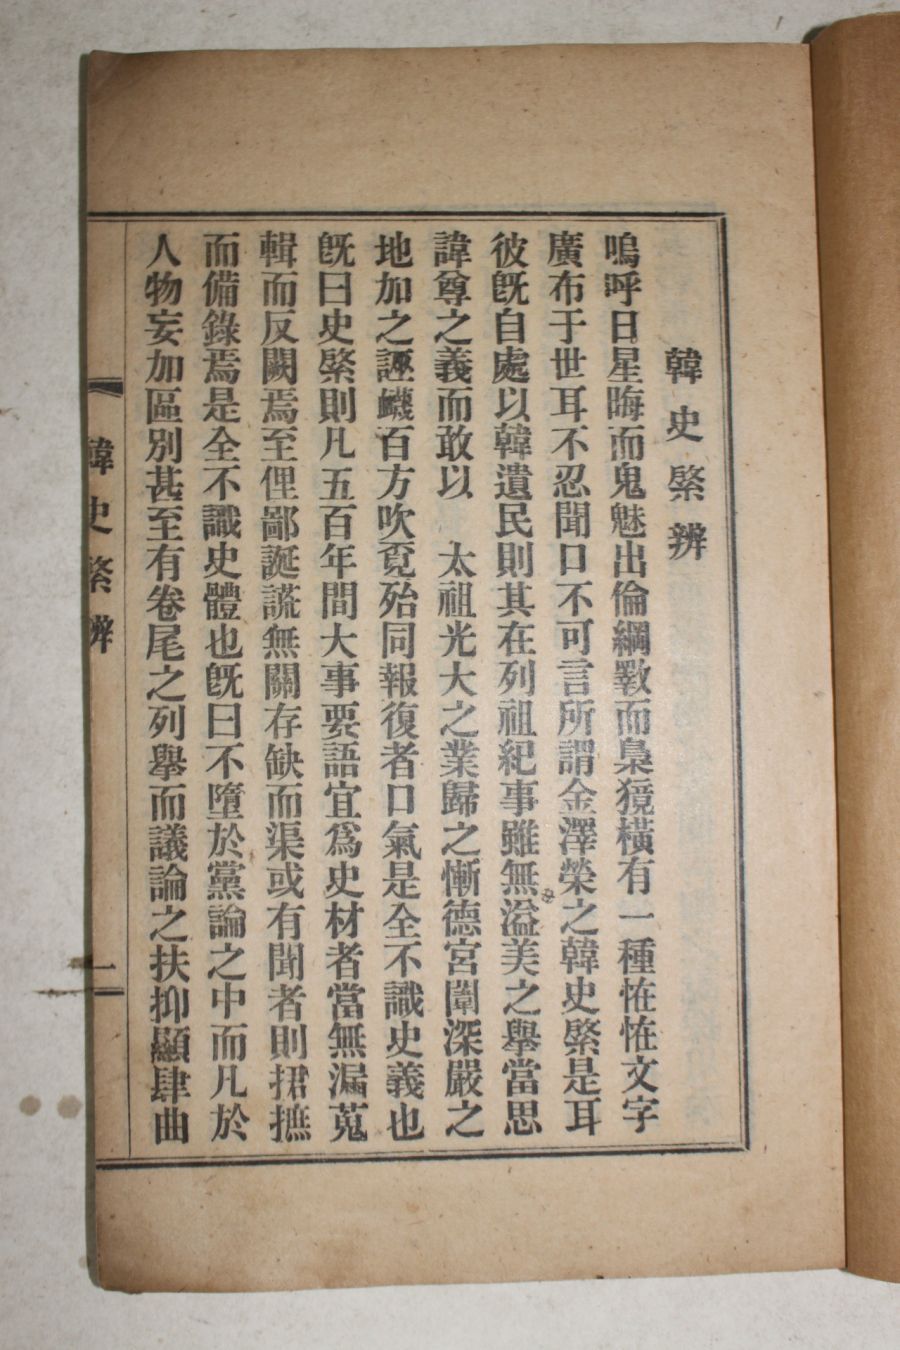 韓史綮辨
嗚呼日星晦而鬼魅出倫綱斁而梟獍橫有一種恠恠文字
廣布于世耳不忍聞口不可言所謂金澤榮之韓史綮是耳
彼旣自處以韓遺民則其在列祖紀事雖無溢美之擧當思
諱尊之義而敢以 太祖光大之業歸之慚德宮闈深嚴之
地加之誣衊百方吹覓殆同報復者口氣是全不識史義也
旣曰史綮則凡五百年間大事要語宜爲史材者當無漏蒐
輯而反闕焉至俚鄙誕謊無關存缺而渠或有聞者則捃摭
而備錄焉是全不識史體也旣曰不墮於黨論之中而凡於
人物妄加區別甚至有卷尾之列擧而議論之扶抑顯肆曲
韓史綮辨
一